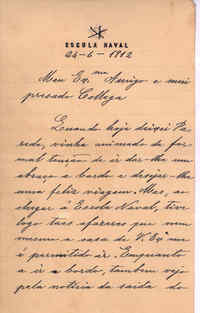 ESCOLA NAVAL
24-6-1912
Meu Exmo Amigo e meu
presado Collega
Quando hoje deixei Pa
rede, vinha animado de for
mal tenção de ir dar-lhe um
abraço a bordo e desejar-lhe
uma feliz viagem. Mas, ao
chegar á Escola Naval, tive
logo tais afazeres que nem
mesmo a casa de V. Exa me
é permitido ir. Emquanto
a ir a bordo, tambem vejo
pela noticia da saida do